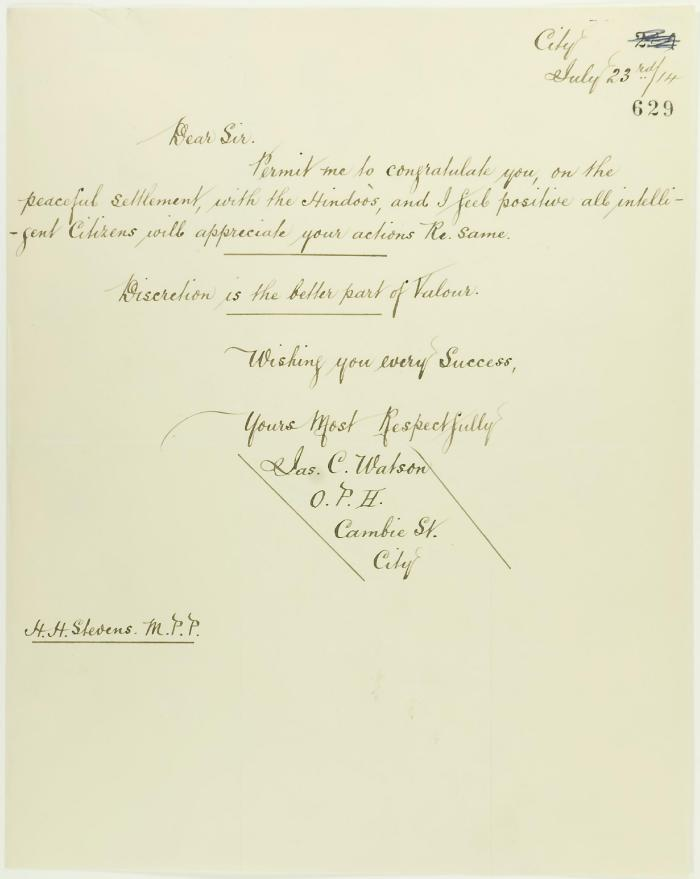 City
July 23rd/14
629
Dear Sir.
Permit me to congratulate you, on the
peaceful settlement, with the Hindoo's, and I feel positive all intelli-
-gent Citizens will appreciate your actions Re. same.
Discretion is the better part of Valour.
Wishing you every Success,
Yours Most Respectfully
Jas. C. Watson
O. P. H.
Cambie St.
City
H. H. Stevens. M. P. P.